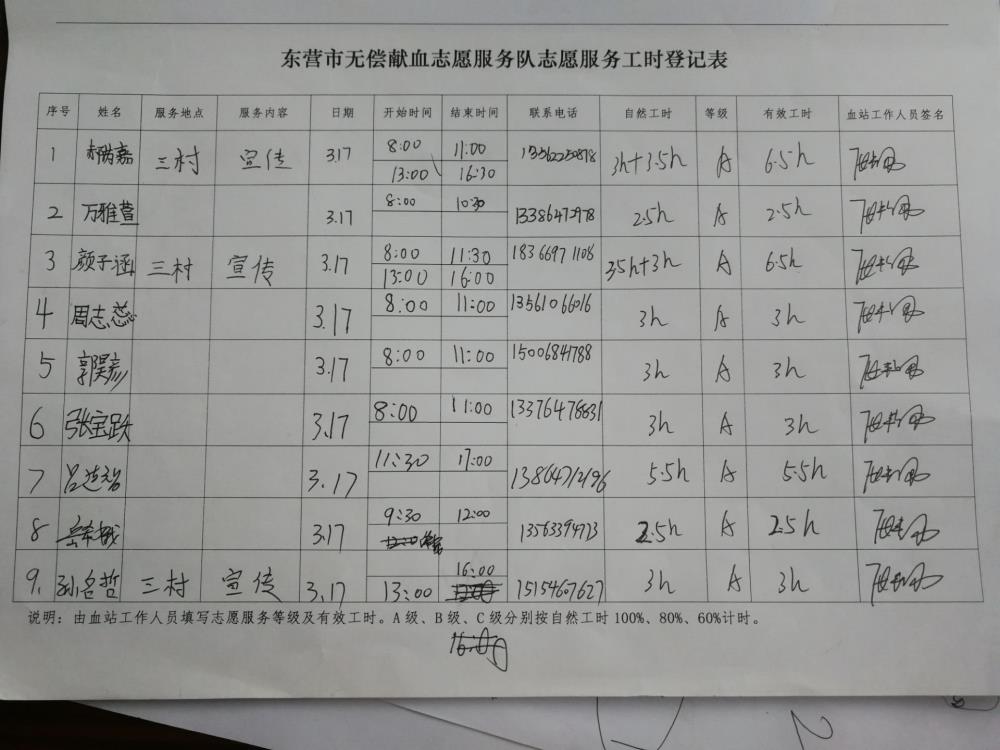 东营市无偿献血志愿服务队志愿服务工时登记表
序号 姓名 服务地点 服务内容 日期 开始时间 结束时间 联系电话 自然工时 等级 有效工时 血站工作人员签名
1 三村 宣传 3.17 8:00 11:00 3h+3.5h A 6.5h
13:00 16:30
2 万雅萱 3.17 8:00 10:30 2.5h A 2.5h
3 颜子涵 三村 宣传 3.17 8:00 11:30 18366971108 35h+3h A 6.5h
13:00 16:00
4 周志蕊 3.17 8:00 11:00 13561066016 3h A 3h
5 郭昊彬 3.17 8:00 11:00 15006841788 3h A 3h
6 张宝跃 3.17 8:00 11:00 3h A 3h
7 3.17 11:30 17:00 13864712196 5.5h A 5.5h
8 3.17 9:30 12:00 13563394713 2.5h A 2.5h
9. 孙名哲 三村 宣传 3.17 13:00 16:00 15154607627 3h A 3h
说明：由血站工作人员填写志愿服务等级及有效工时。A 级、B 级、C 级分别按自然工时 100%、80%、60%计时。